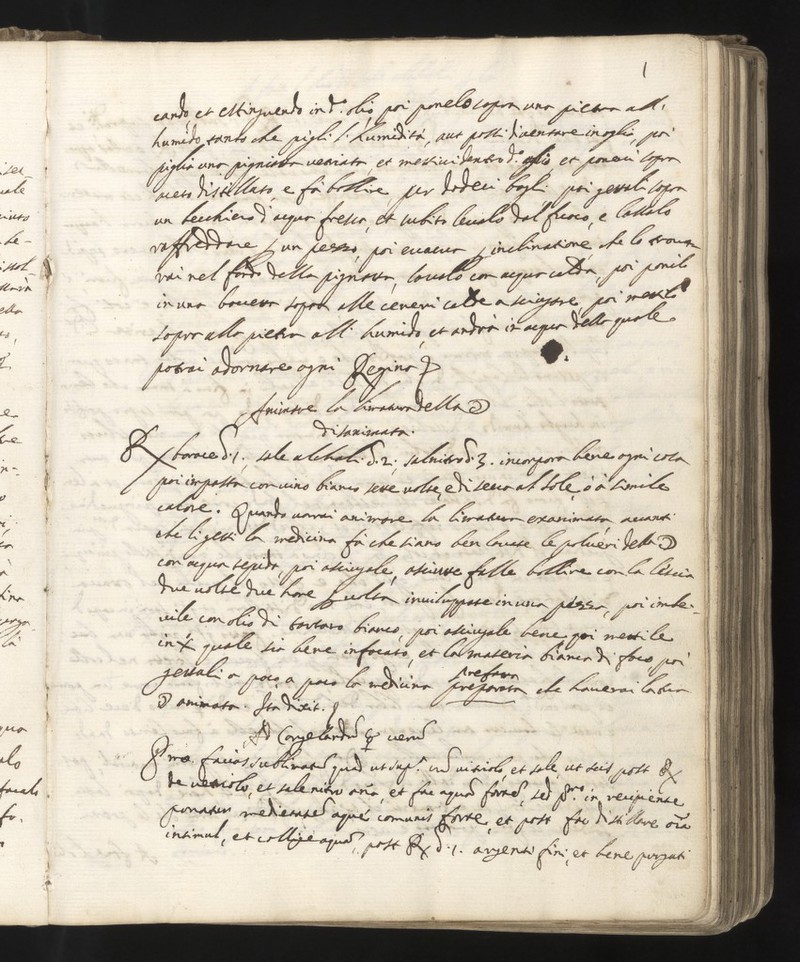 1
cando, et estinguendo in d.º olio, poi ponelo sopra una pietra all'
humido, tanto che pigli l'humidità, aut possi diventare in oglio, poi
piglia una pignatta vetriata et mettivi dentro d.º oglio et ponevi sopra
aceto distillato, e fà bollire per dodeci bogli poi gettali sopra
un bicchiero d'acqua fresca, et subito levalo dal fuoco, e lassalo
raffreddare p un pezzo, poi evacua p inclinatione, che lo trova-
rai nel fondo della pignatta, lavalo con acqua calda, poi ponilo
in una boccetta sopra alle ceneri calde a sciugare, poi mettilo
sopra alla pietra all' humido, et andrà in acqua della quale
potrai adornare ogni Regina
Animare la limatura della ☽
disanimata.
℞ borace d. 1. sale alchali d. 2. salnitro d. 3. incorpora bene ogni cosa
poi impasta con vino bianco sette volte, e disecca al sole, ò à simile
calore. Quando vorrai animare la limatura exanimata avanti
che li getti la medicina fà che siano ben lavate le polveri della ☽
con acqua tepida, poi asciugale, asciutte falle bollire con la liscia
due volte due hore p volta inviluppate in una pezza, poi imbe-
vile con olio di tartaro bianco, poi asciugale bene poi mettile
in quale sia bene infocato, et la materia bianca di foco poi
gettali a poco a poco la medicina prefata
preparata che haverai la tua
☽ animata. Ita dixit.
Ad Congelandum ☿ verum
sublimatum quod ut sup.ª cum vitriolo, et sale, ut scis post ℞
de vetriolo, et sale nitro ana, et fac aquam fortem, sed p.º in recipiente
ponatur medietatem aquæ comunis forte, et post fac distillare oĩa
insimul, et collige aquam, post ℞ d. 1. argenti fini, et bene purgati